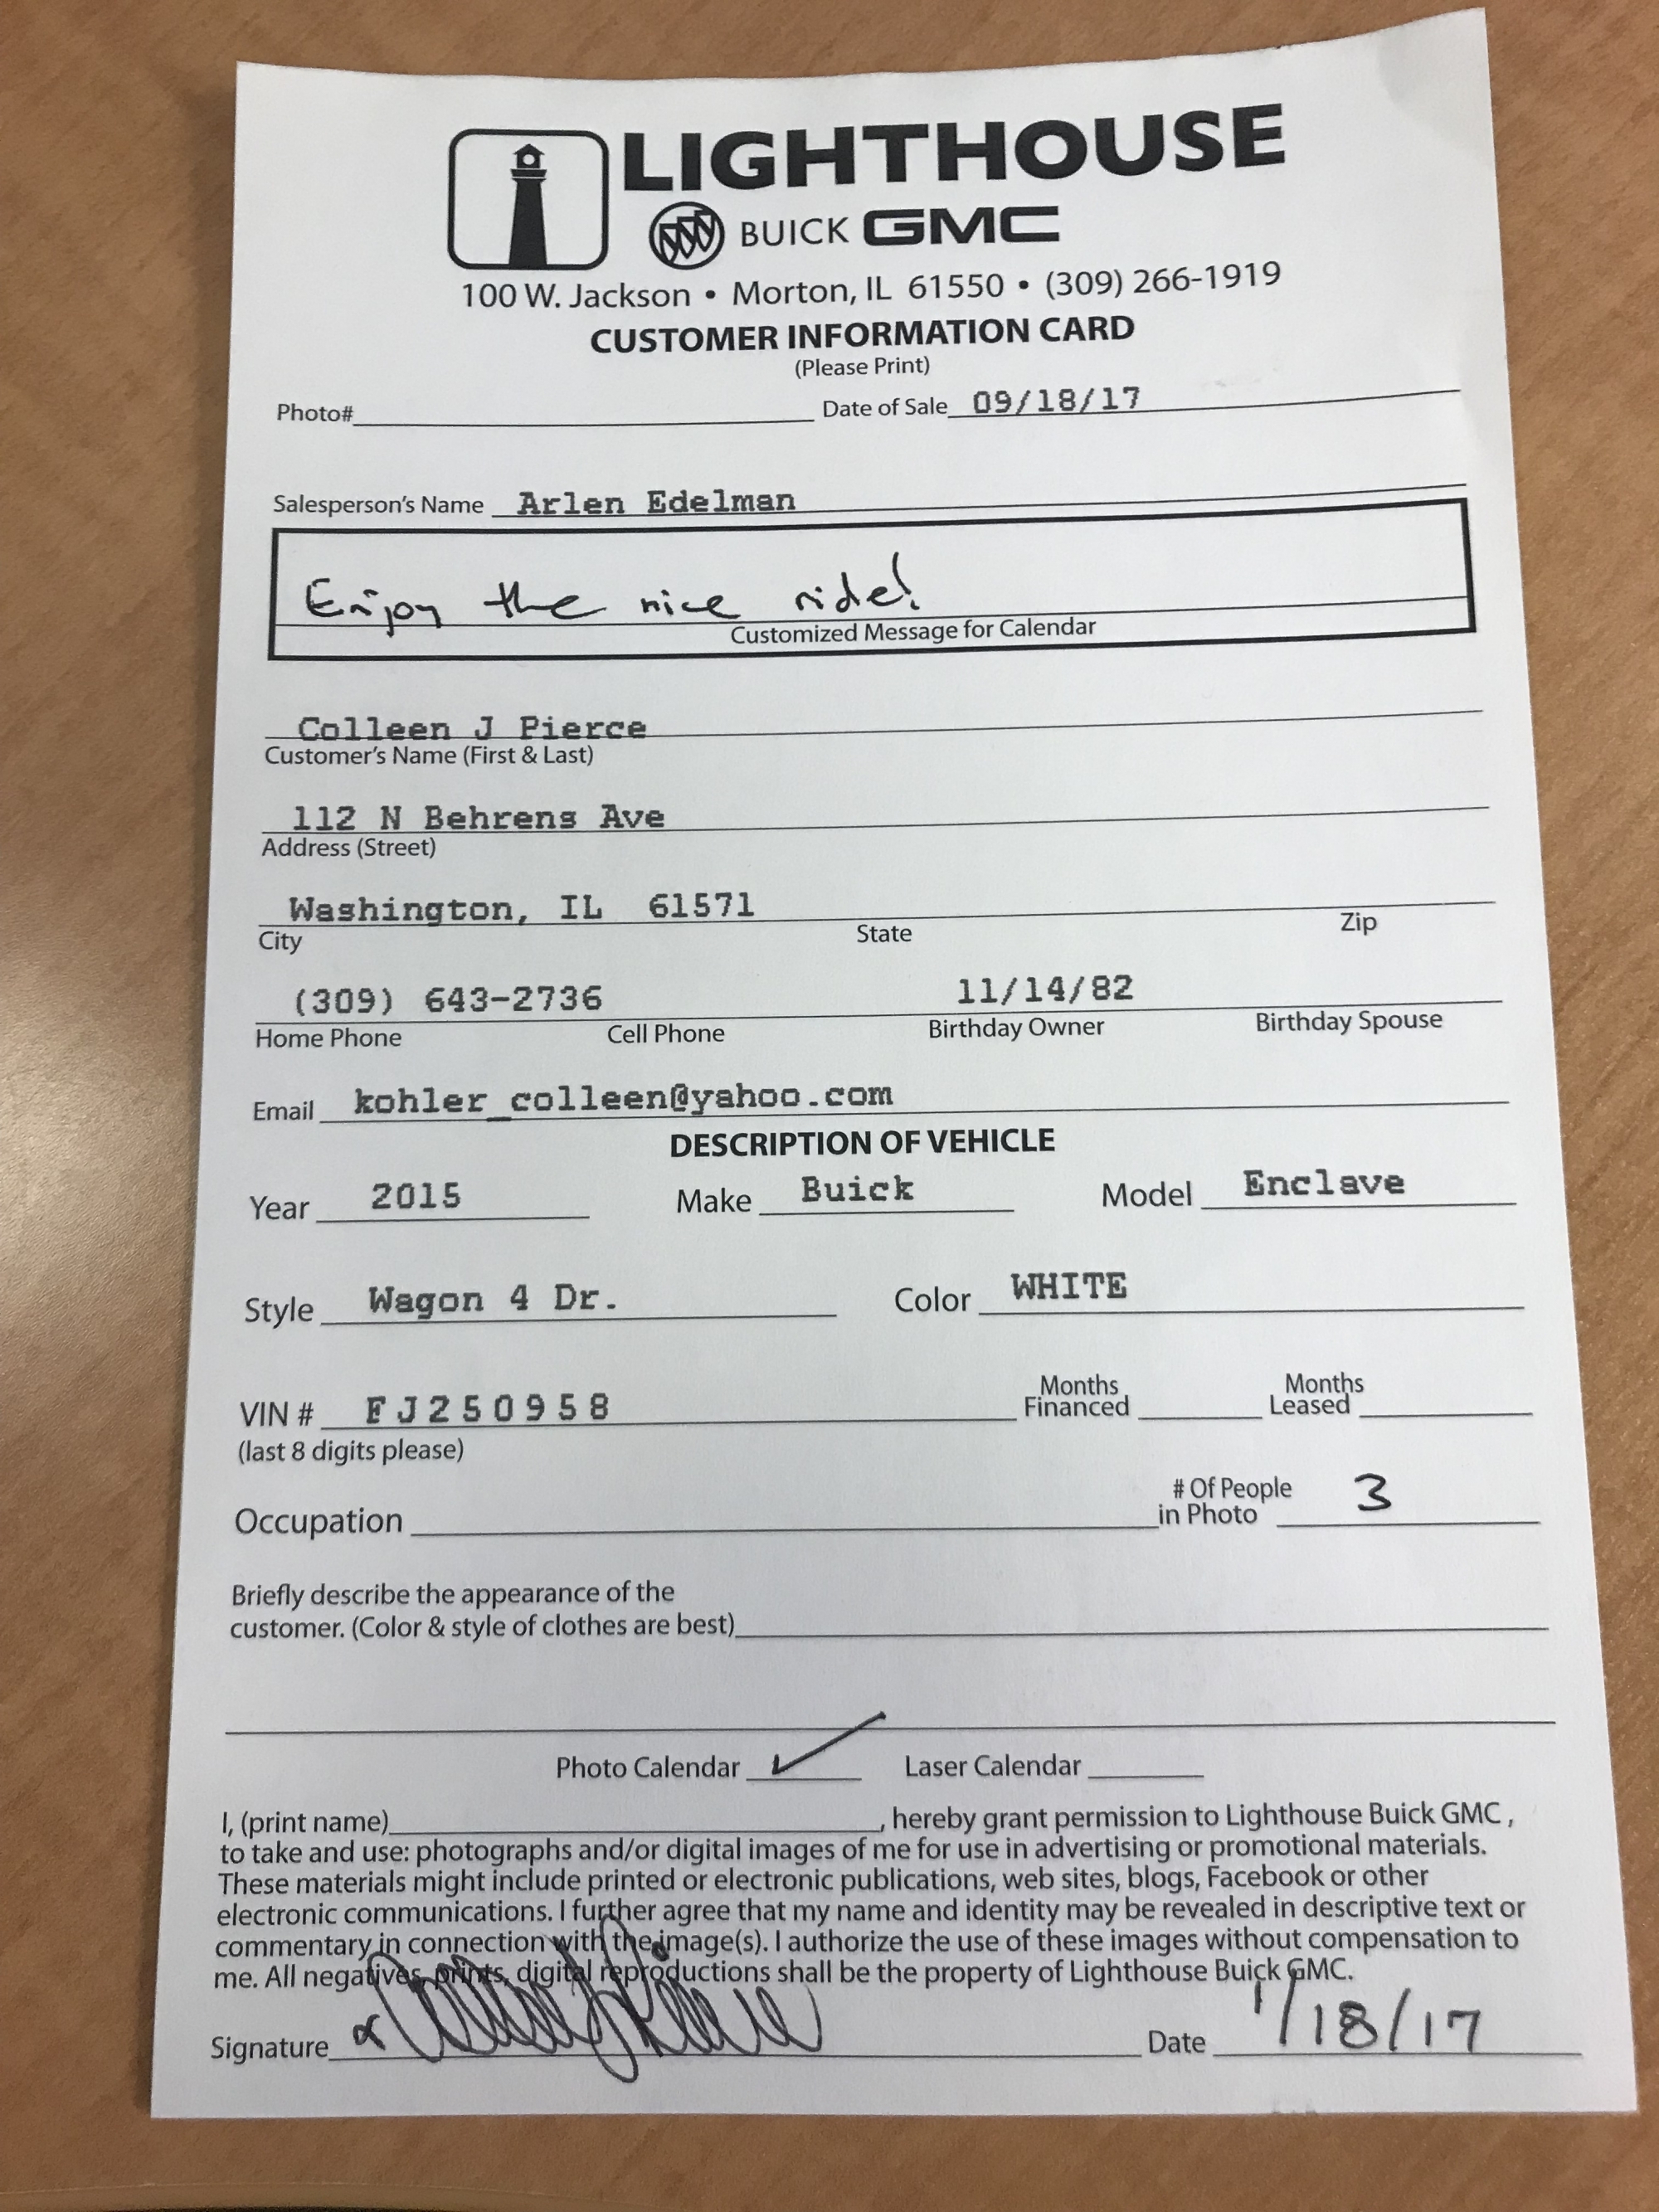 LIGHTHOUSE
BUICK GMC
100 W. Jackson • Morton, IL 61550 • (309) 266-1919
CUSTOMER INFORMATION CARD
(Please Print)
Photo# Date of Sale 09/18/17
Salesperson's Name Arlen Edelman
Enjoy the nice ride!
Customized Message for Calendar
Colleen J Pierce
Customer's Name (First & Last)
112 N Behrens Ave
Address (Street)
Washington, IL 61571
City State Zip
(309) 643-2736 11/14/82
Home Phone Cell Phone Birthday Owner Birthday Spouse
Email kohler_colleen@yahoo.com
DESCRIPTION OF VEHICLE
Year 2015 Make Buick Model Enclave
Style Wagon 4 Dr. Color WHITE
VIN # FJ250958 Months Financed Months Leased
(last 8 digits please)
Occupation # Of People in Photo 3
Briefly describe the appearance of the
customer. (Color & style of clothes are best)
Photo Calendar ✓ Laser Calendar
I, (print name) , hereby grant permission to Lighthouse Buick GMC ,
to take and use: photographs and/or digital images of me for use in advertising or promotional materials.
These materials might include printed or electronic publications, web sites, blogs, Facebook or other
electronic communications. I further agree that my name and identity may be revealed in descriptive text or
commentary in connection with the image(s). I authorize the use of these images without compensation to
me. All negatives, prints, digital reproductions shall be the property of Lighthouse Buick GMC.
Signature Date /18/17